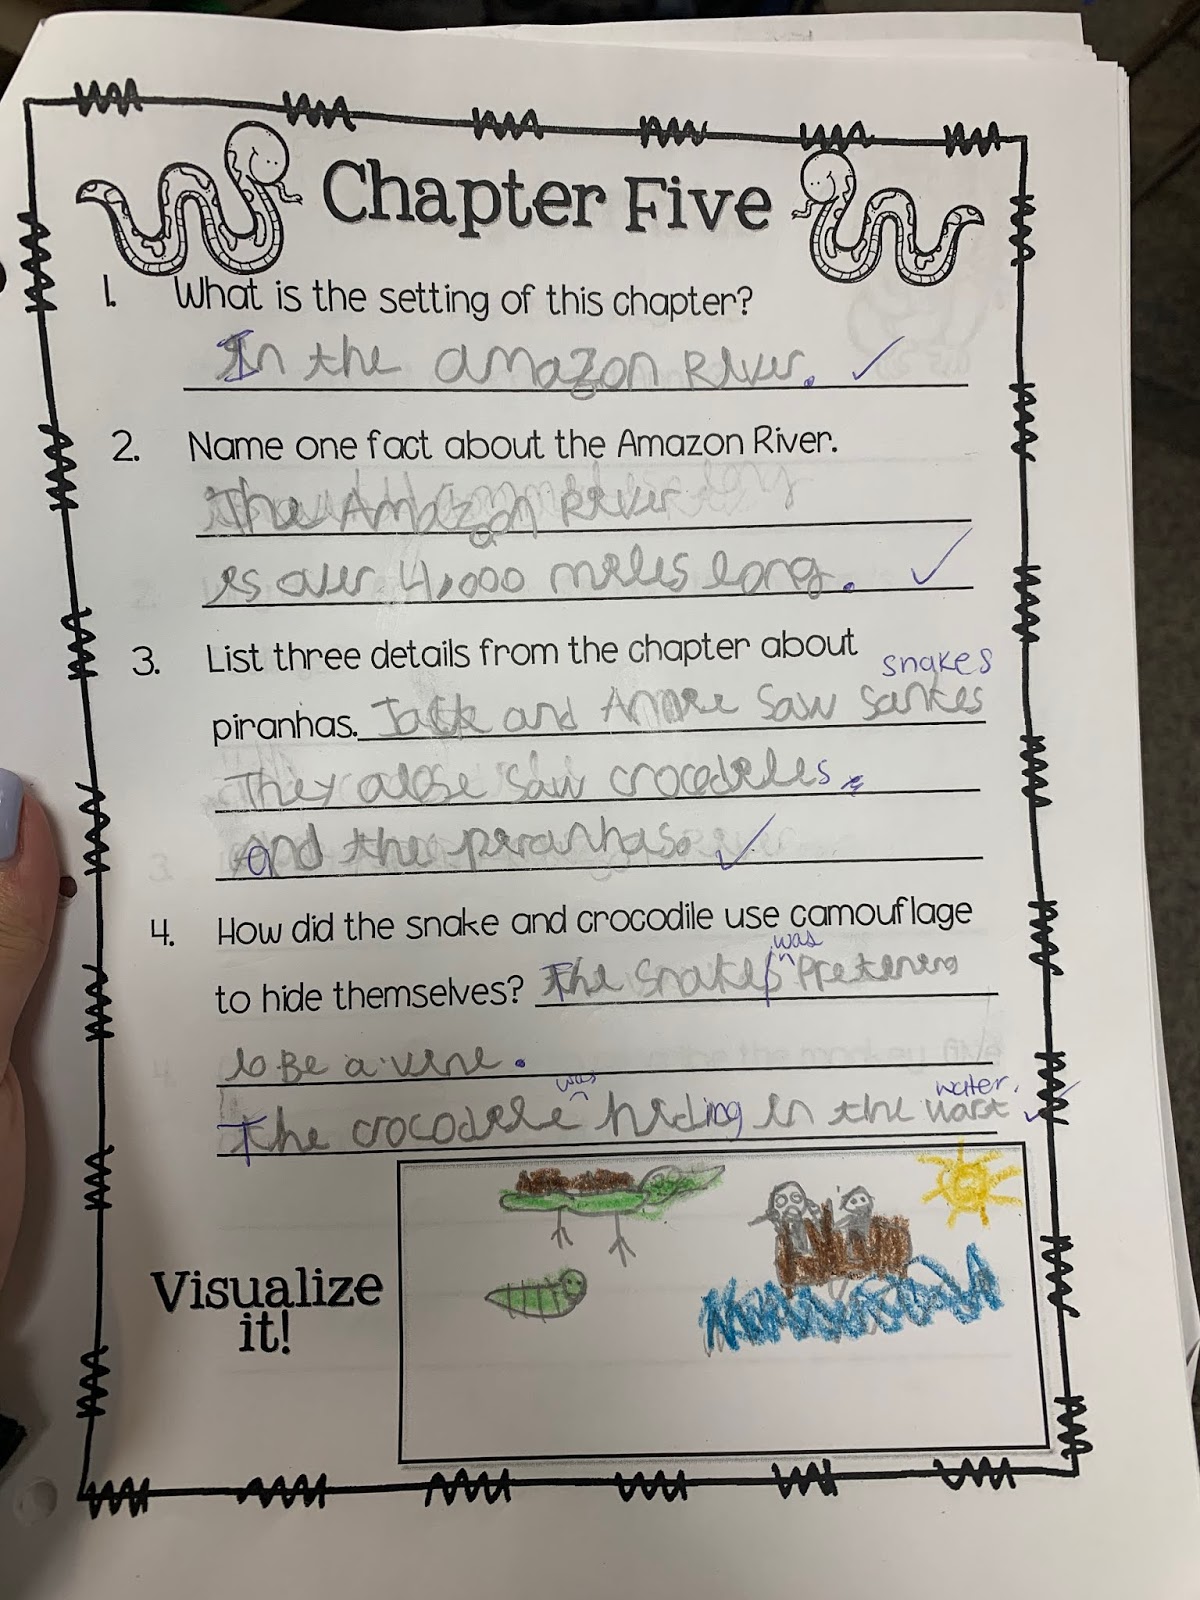 Chapter Five
1. What is the setting of this chapter?
In the amazon River. ✓
2. Name one fact about the Amazon River.
The Amazon River
is over 4,000 miles long. ✓
3. List three details from the chapter about
snakes
piranhas. Jack and Annie saw sankes
They alose saw crocodiles.
and the piranhas. ✓
4. How did the snake and crocodile use camouflage
was
to hide themselves? The snake pretening
to Be a vine.
was water.
The crocodile hiding in the wart ✓
Visualize
it!